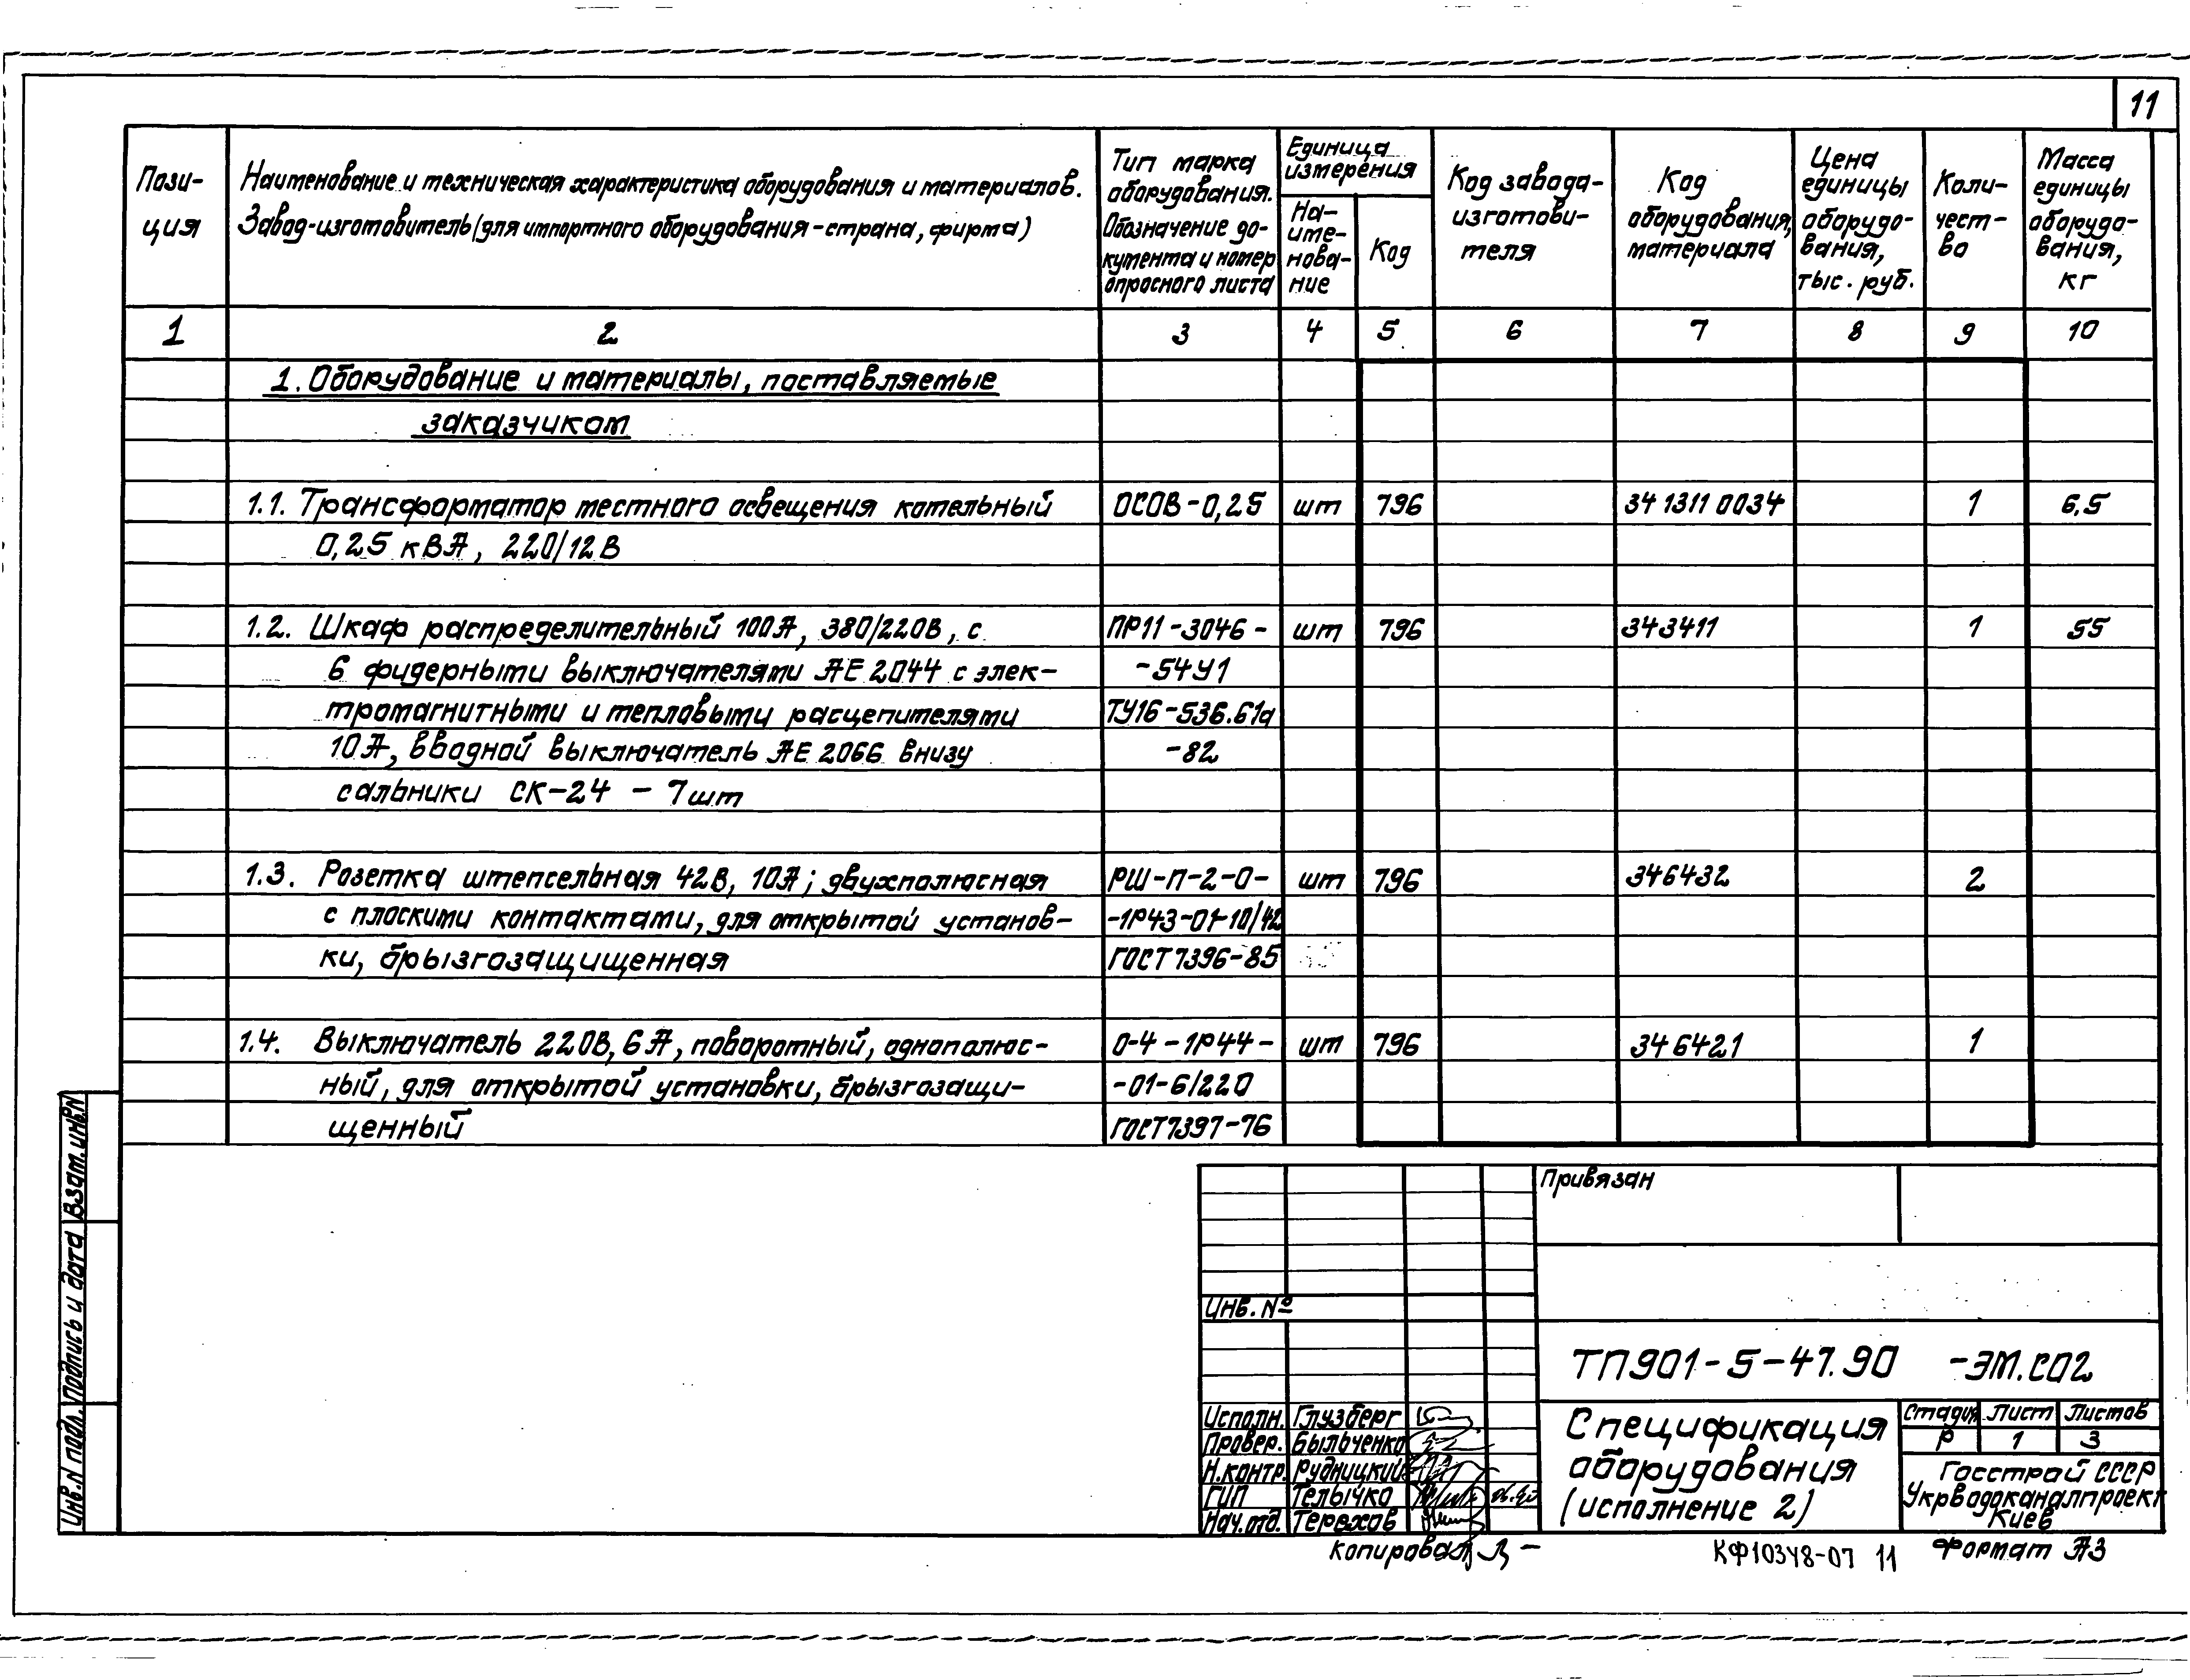 11
Пози-
ция
Наименование и техническая характеристика оборудования и материалов.
Завод-изготовитель (для импортного оборудования - страна, фирма)
Тип марка
оборудования.
Обозначение до-
кумента и номер
опросного листа
Единица
измерения
На-
име-
нова-
ние
Код
Код завода-
изготови-
теля
Код
оборудования,
материала
Цена
единицы
оборудо-
вания,
тыс. руб.
Коли-
чест-
во
Масса
единицы
оборудо-
вания,
кг
1 2 3 4 5 6 7 8 9 10
1. Оборудование и материалы, поставляемые
заказчиком
1.1. Трансформатор местного освещения котельный ОСОВ-0,25 шт 796 34 1311 0034 1 6.5
0,25 кВА, 220/12В
1.2. Шкаф распределительный 100А, 380/220В, с ПР11-3046- шт 796 343411 1 55
6 фидерными выключателями АЕ 2044 с элек- -54У1
тромагнитными и тепловыми расцепителями ТУ16-536.61д
10А, вводной выключатель АЕ 2066 внизу -82
сальники СК-24 - 7шт
1.3. Розетка штепсельная 42В, 10А; двухполюсная РШ-П-2-0- шт 796 346432 2
с плоскими контактами, для открытой установ- -1Р43-01-10/42
ки, брызгозащищенная ГОСТ7396-85
1.4. Выключатель 220В, 6А, поворотный, однополюс- 0-4-1Р44- шт 796 346421 1
ный, для открытой установки, брызгозащи- -01-6/220
щенный ГОСТ7397-76
Взам. инв.N
Подпись и дата
Инв.N подл.
Привязан
Инв. №
ТП901-5-47.90 -ЭМ.СО2
Исполн. Глузберг
Провер. Быльченко
Н.контр. Рудницкий
ГИП Телычко
Нач.отд. Терехов
Спецификация
оборудования
(исполнение 2)
Стадия Лист Листов
Р 1 3
Госстрой СССР
Укрводоканалпроект
Киев
Копировал
КФ10348-07 11
Формат А3